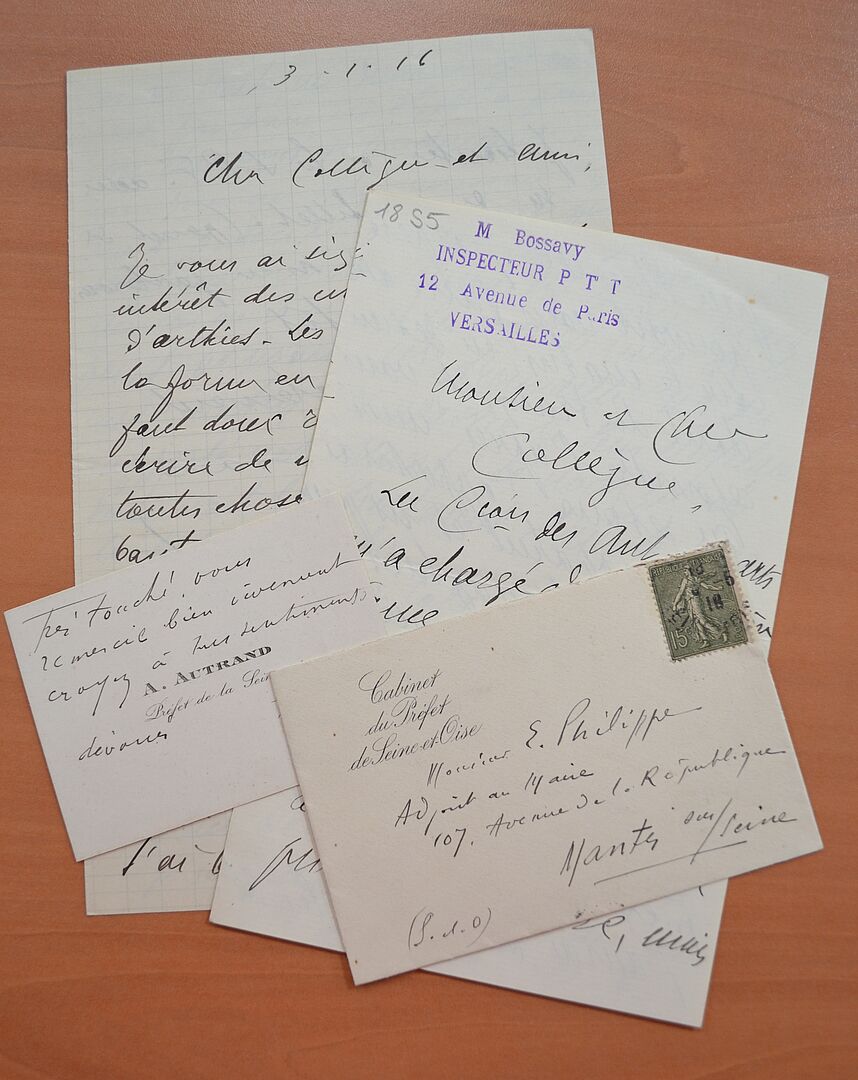 3-1-16
Cher Collègue et ami,
Je vous ai
intérêt des
d'arthies. Les
la forme en
faut donc
écrire de
toutes chose
1855
M Bossavy
INSPECTEUR P T T
12 Avenue de Paris
VERSAILLES
Monsieur et Cher
Collègue,
Les Croix des
m'a chargé
Très touché, vous
remercie bien vivement
croyez à mes sentiments
A. AUTRAND
Préfet de la Sein
dévoués
J'ai
Cabinet
du Préfet
de Seine-et-Oise
15c
Monsieur E. Philippe
Adjoint au Maire
107, Avenue de la République
Mantes sur/Seine
(S. et O)
mais